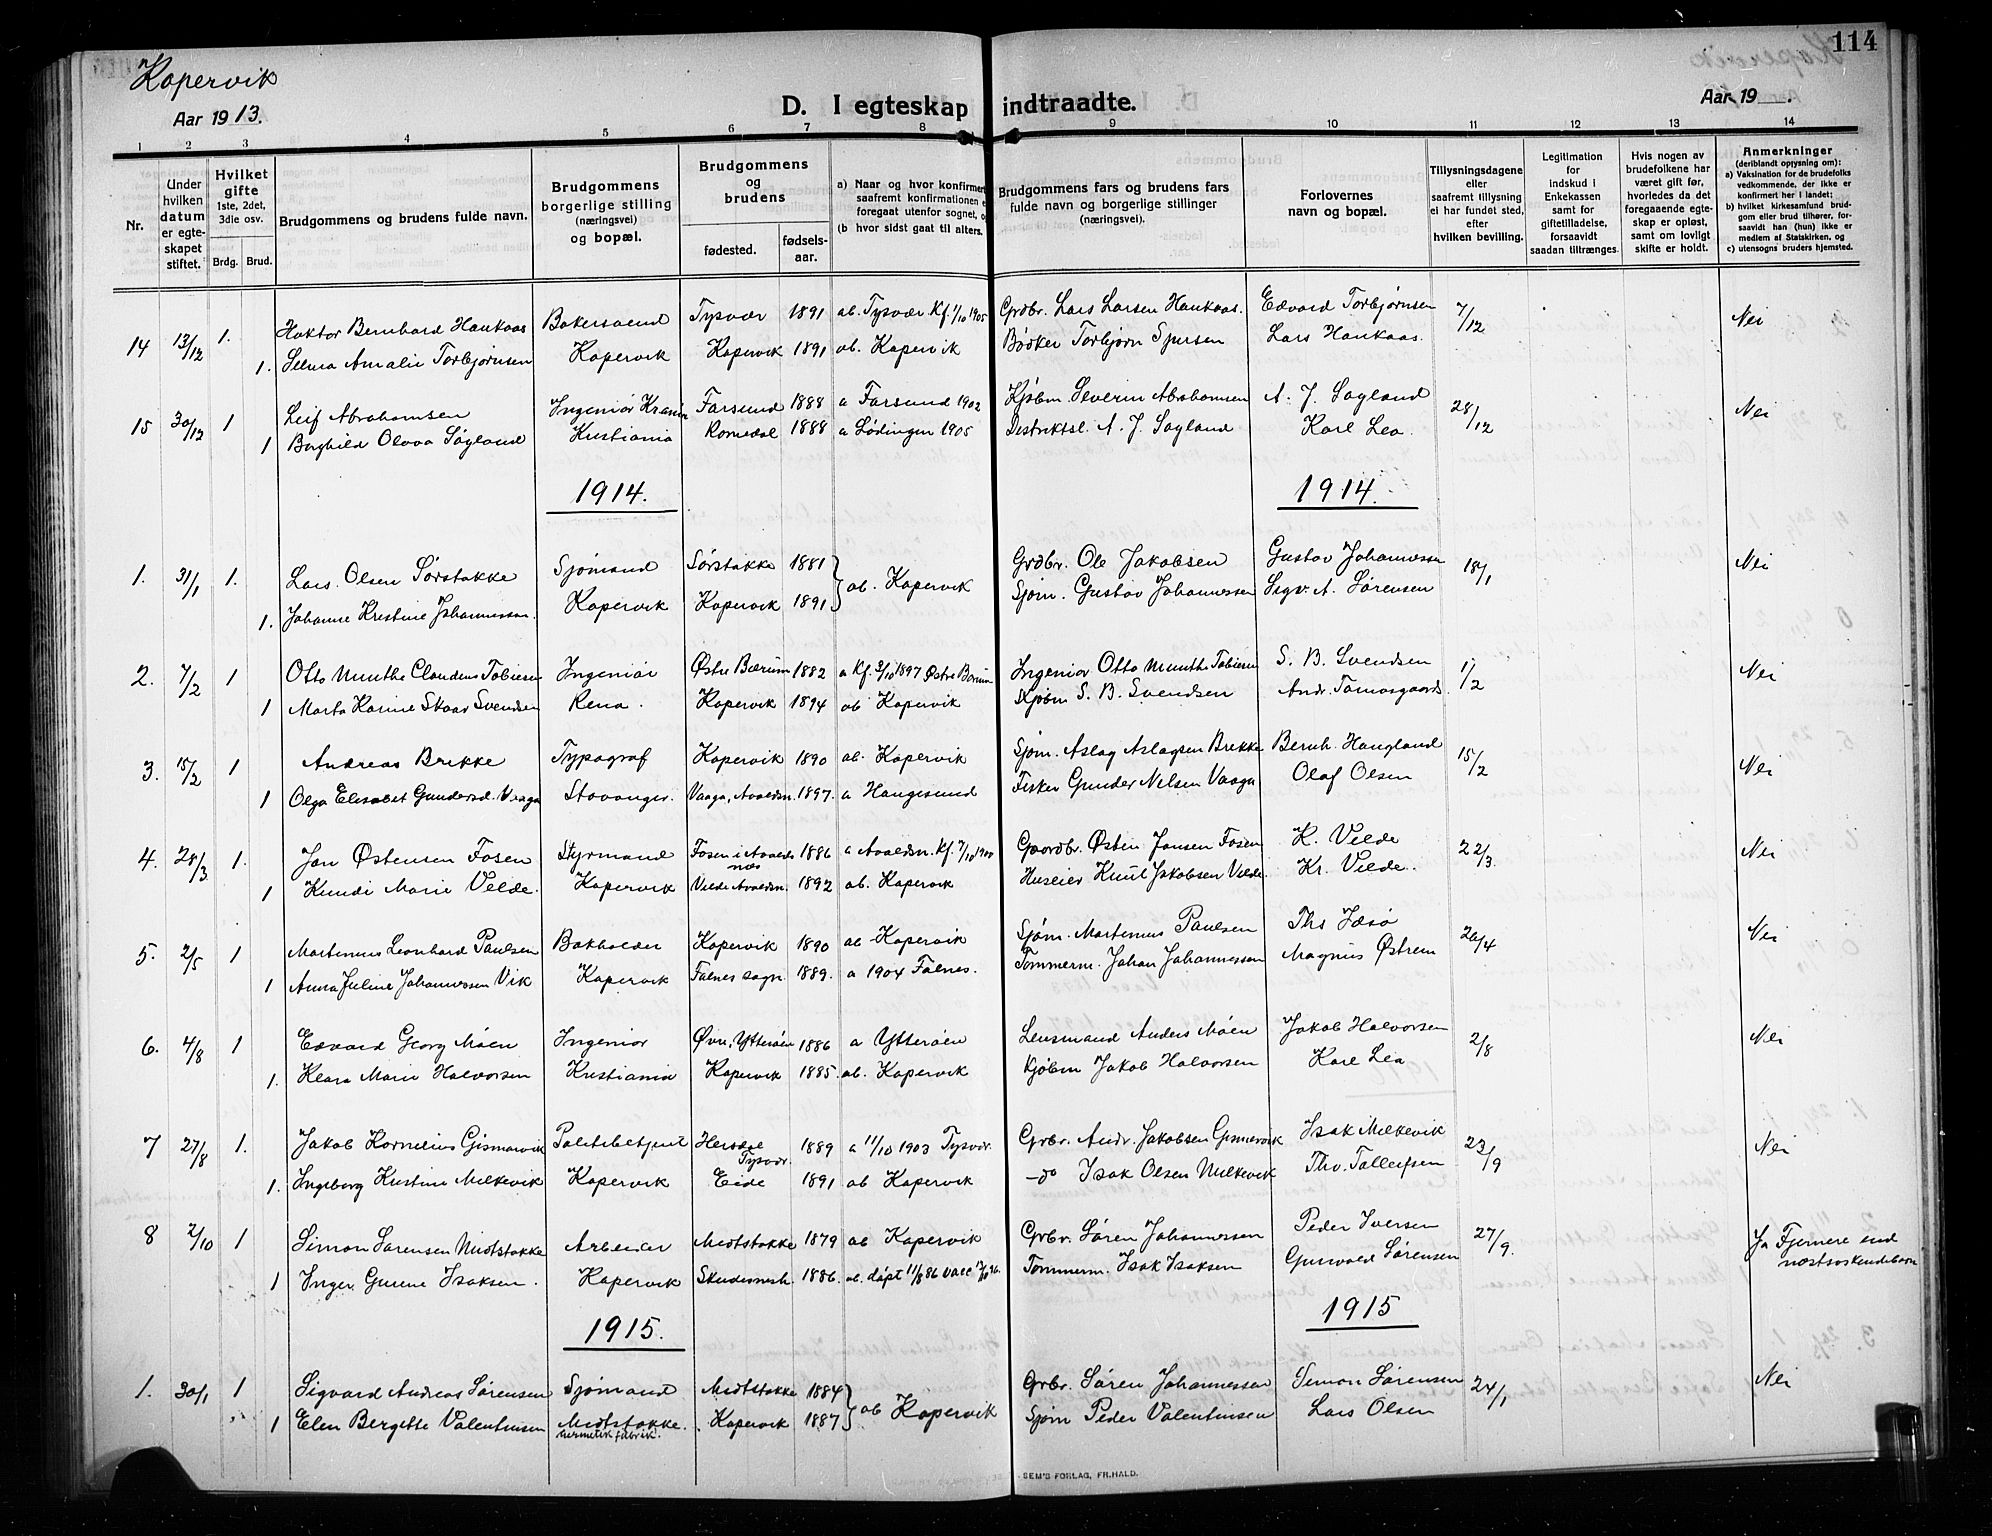 Kopervik
114
Aar 1913.
D. I egteskap indtraadte.
Aar 19 .
1 2 3 4 5 6 7 8 9 10 11 12 13 14
Nr.
Under hvilken datum er egteskapet stiftet.
Hvilket gifte 1ste, 2det, 3die osv.
Brdg. Brud.
Brudgommens og brudens fulde navn.
Brudgommens borgerlige stilling (næringsvei) og bopæl.
Brudgommens og brudens
fødested. fødsels-aar.
a) Naar og hvor konfirmert saafremt konfirmationen e foregaat utenfor sognet, o
(b hvor sidst gaat til alters.
Brudgommens fars og brudens fars fulde navn og borgerlige stillinger (næringsvei).
Forlovernes navn og bopæl.
Tillysningsdagene eller saafremt tillysning ei har fundet sted, efter hvilken bevilling.
Legitimation for indskud i Enkekassen samt for giftetilladelse, forsaavidt saadan tiltrænges.
Hvis nogen av brudefolkene har været gift før, hvorledes da det foregaaende egteskap er opløst, samt om lovligt skifte er holdt.
Anmerkninger (deriblandt oplysning om): a) Vaksination for de brudefolks vedkommende, der ikke er konfirmert her i landet; b) hvilket kirkesamfund brudgom eller brud tilhører, forsaavidt han (hun) ikke er medlem af Statskirken, og c) utensogns bruders hjemsted.
14 13/12 1. Haktor Bernhard Haukaas Bakersvend Tysvær 1891 ab. Tysvær Kf. 1/10 1905 Grdbr. Lars Larsen Haukaas. Edvard Torbjørnsen 7/12 Nei
1. Selma Amalie Torbjørnsen Kopervik Kopervik 1891 ab. Kopervik Bødker Torbjørn Sjursen Lars Haukaas.
15 30/12 1 Leif Abrahamsen Ingeniør Farsund 1888 a Farsund 1902 Kjøbm. Severin Abrahamsen A. J. Søyland 28/12 Nei
1 Borghild Olava Søyland Kristiania Romedal 1888 a Lødingen 1905 Distriktsl. A. J. Søyland Karl Lea.
1914. 1914.
1. 31/1 1. Lars Olsen Sørstokke Sjømand Sørstokke 1881 } ab. Kopervik Grdbr. Ole Jakobsen Gustav Johannessen 18/1 Nei
1. Johanne Kristine Johannessen. Kopervik Kopervik 1891 Sjøm. Gustav Johannessen Sigv. A. Sørensen
2. 7/2 1 Otto Munthe Claudius Tobiesen Ingeniør Østre Bærum 1882 a Kf. 3/10 1897 Østre Bærum Ingeniør Otto Munthe Tobiesen S. B. Svendsen 1/2 Nei
1 Marta Karine Skaar Svendsen Rena. Kopervik 1894 ab Kopervik Kjøbm S. B. Svendsen Andr. Tamosgaard.
3. 15/2 1 Andreas Brekke Typograf Kopervik 1890 ab. Kopervik Sjøm. Aslag Aslagsen Brekke Bernh. Haugland 15/2 Nei
1 Olga Elisabet Gundersd. Vaaga Stavanger. Vaaga, Avaldsn. 1897. a Haugesund Fisker Gunder Nilsen Vaaga Olaf Olsen
4. 28/3 1. Jan Østensen Fosen Styrmand Fosen i Avaldsnes 1886 a Avaldsn. Kf. 7/10 1900 Gaardbr. Østen Jansen Fosen K. Velde 22/3 Nei
1 Kundi Marie Velde. Kopervik Velde Avaldsn. 1892 ab. Kopervik Huseier Knut Jakobsen Velde. Kr. Velde.
5. 2/5 1 Martenius Leonhard Paulsen Bokholder Kopervik 1890 ab Kopervik Sjøm. Martenius Paulsen Ths Jæsø 26/4 Nei
1 Anna Juline Johannessen Vik Kopervik Falnes sogn. 1889. a 1904 Falnes. Tømmerm. Johan Johannessen Magnus Østrem
6. 4/8 1 Edvard Georg Moen Ingeniør Øvre, Ytterøen 1886 a Ytterøen Lensmand Anders Moen Jakob Halvorsen 2/8 Nei
1. Klara Marie Halvorsen Kristiania Kopervik 1885. ab. Kopervik Kjøbm Jakob Halvorsen Karl Lea
7 27/8 1. Jakob Kornelius Gismarvik Politibetjent Hesdal Tysvær. 1889 a 11/10 1903 Tysvær. Grbr. Andr. Jakobsen Gismarvik Isak Milkevik 23/9 Nei
1. Ingeborg Kristine Milkevik Kopervik Eide 1891 ab Kopervik -do Isak Olsen Milkevik Thv. Tolleifsen
8 2/10 1 Simon Sørensen Midtstokke Arbeider Midtstokke 1879 ab Kopervik Grbr. Søren Johannessen Peder Iversen 27/9. Ja Fjernere end næstsøskendebarn
1 Inger Gurine Isaksen. Kopervik Skudenesh. 1886. ab. døpt 11/8 86 vacc Tømmerm. Isak Isaksen Gunvald Sørensen
1915. 1915
1. 30/1 1 Sigvard Andreas Sørensen Sjømand Midtstokke 1884 } ab Kopervik Grbr. Søren Johannessen Simon Sørensen 24/1 Nei
1 Elen Bergitte Valentinsen Midtstokke. hermetikfabrik. Kopervik 1887 Sjøm Peder Valentinsen Lars Olsen
SEM'S FORLAG, FR.HALD.